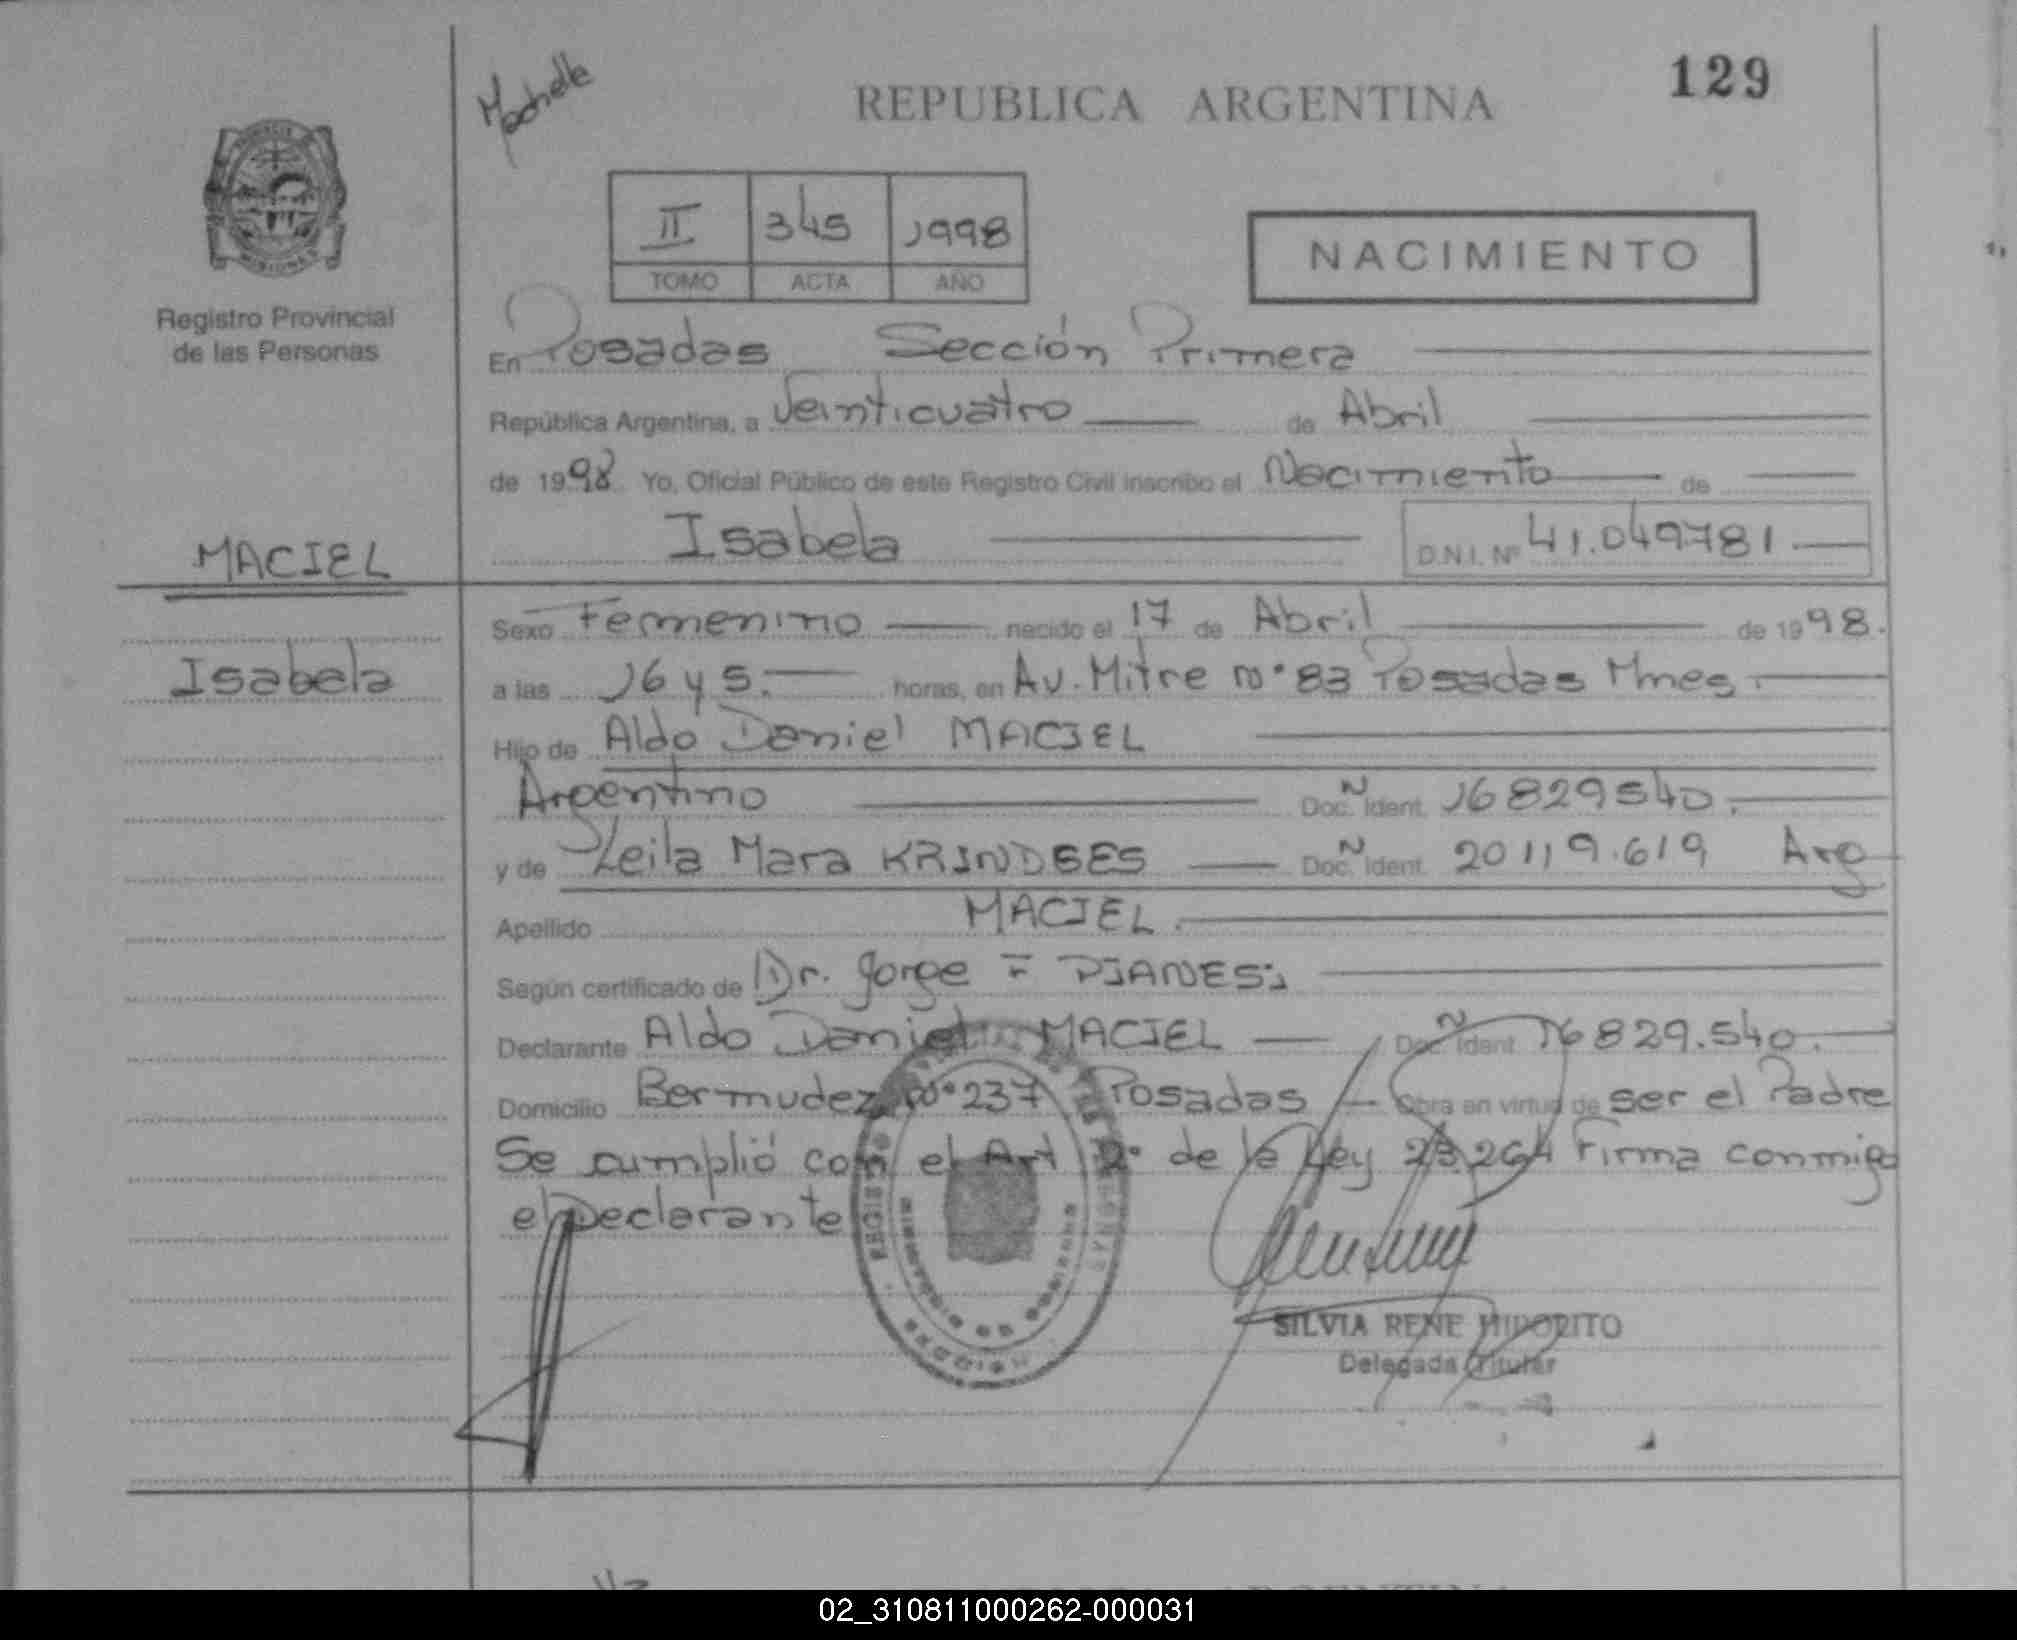 129
REPUBLICA ARGENTINA
II 345 1998
TOMO ACTA AÑO
NACIMIENTO
MISIONES
Registro Provincial
de las Personas
En Posadas Sección Primera
República Argentina, a Veinticuatro de Abril
de 1998 Yo, Oficial Público de este Registro Civil inscribo el Nacimiento de
Isabela D.N.I. Nº 41.049781
MACIEL
Isabela
Sexo Femenino nacido el 17 de Abril de 1998.
a las 16 y 5. horas, en Av. Mitre nº 83 Posadas Mnes.
Hijo de Aldo Daniel MACIEL
Argentino Doc. Ident. 16829540.
y de Leila Mara Doc. Ident. 20119.619 Arg
Apellido MACIEL.
Según certificado de Dr. Jorge F PIANESi
Declarante Aldo Daniel MACIEL Doc. Ident 16829.540.
Domicilio Bermudez nº 237 Posadas Obra en virtud de ser el Padre
Se cumplió con el Art 2º de la Ley 23.264 Firma conmigo
el Declarante
SILVIA RENE HIPOPITO
Delegada Titular
REPUBLICA ARGENTINA
02_310811000262-000031